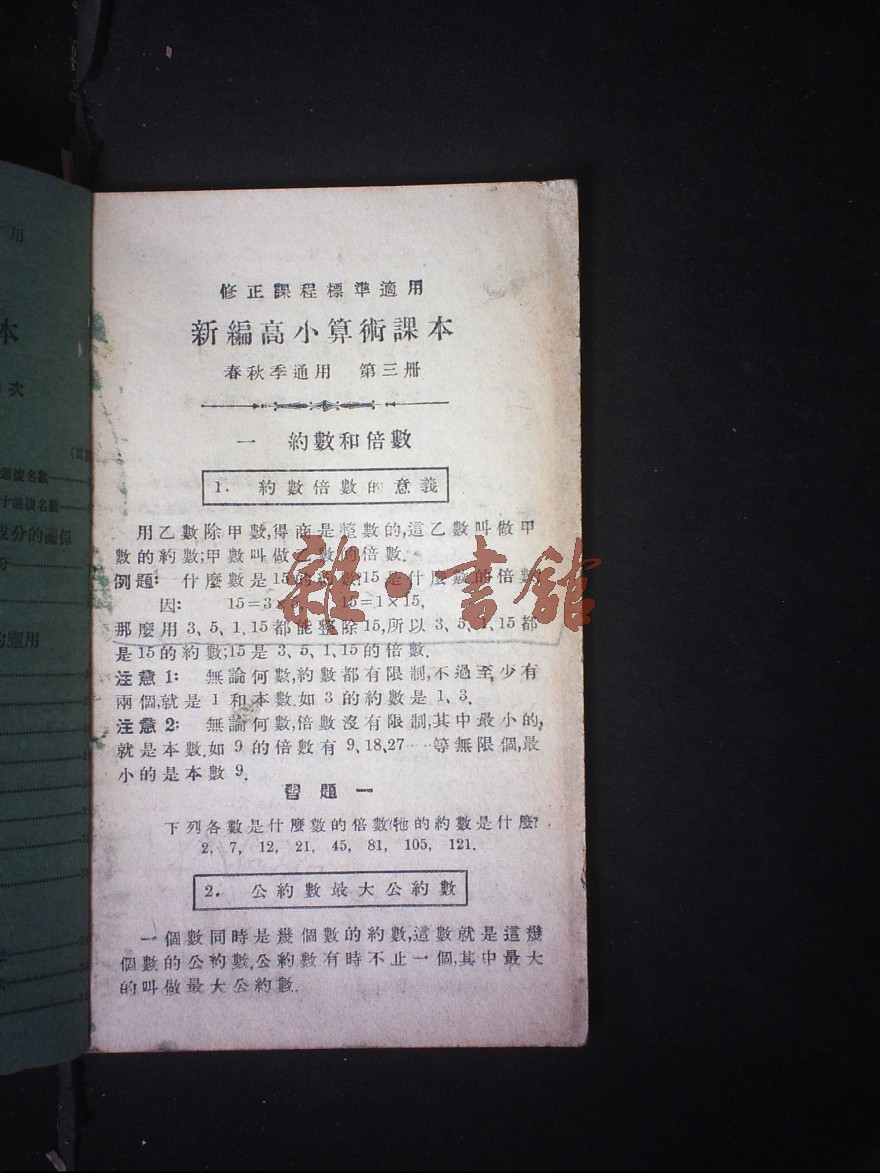 用
本
次
修正課程標準適用
新編高小算術課本
春秋季通用 第三册
一 約數和倍數
1. 約數倍數的意義
用乙數除甲數,得商是整數的,這乙數叫做甲
數的約數;甲數叫做乙數的倍數.
例題: 什麼數是15的約數?15是什麼數的倍數?
因: 15=3×5, 15=1×15,
那麼用 3、5、1、15都能整除15,所以 3、5、1、15都
是15的約數;15是 3、5、1、15的倍數.
注意1: 無論何數,約數都有限制,不過至少有
兩個,就是 1 和本數.如 3 的約數是 1、3.
注意2: 無論何數,倍數沒有限制,其中最小的,
就是本數.如 9 的倍數有 9、18、27……等無限個,最
小的是本數 9.
習題一
下列各數是什麼數的倍數?牠的約數是什麼?
2, 7, 12, 21, 45, 81, 105, 121.
2. 公約數最大公約數
一個數同時是幾個數的約數,這數就是這幾
個數的公約數.公約數有時不止一個,其中最大
的叫做最大公約數.
雜·書館